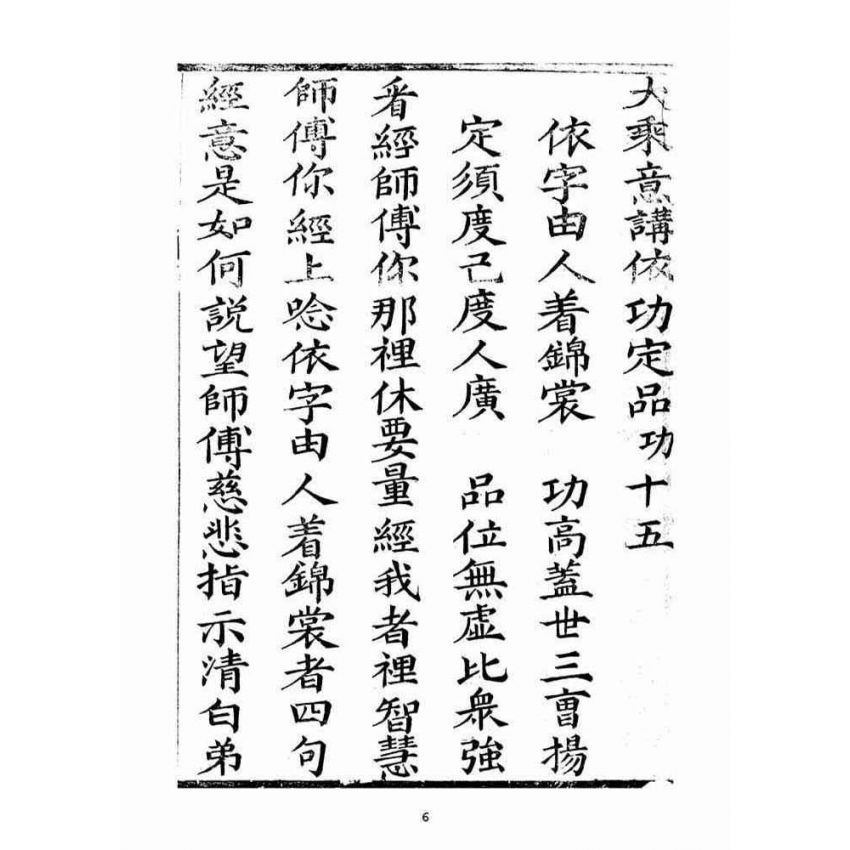 大乘意講依功定品功十五
依字由人着錦裳　功高蓋世三曺揚
定須度己度人廣　品位無虛比衆強
看經師傅你那裡休要量經我者裡智慧
師傅你經上唸依字由人着錦裳者四句
經意是如何説望師傅慈悲指示清白弟
6